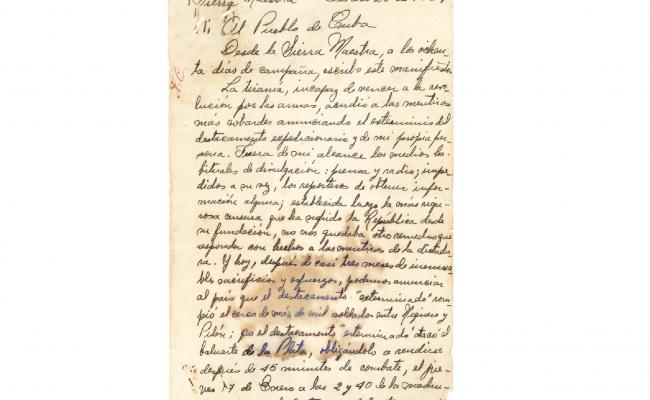 Sierra Maestra
Al Pueblo de Cuba
Desde la Sierra Maestra, a los ochen-
ta días de campaña, escribo este manifiesto.
La tiranía, incapaz de vencer a la revo-
lución por las armas, acudió a las mentiras
más cobardes anunciando el exterminio del
destacamento expedicionario y de mi propia per-
sona. Fuera de mi alcance los medios ha-
bituales de divulgación: prensa y radio; impe-
didos a su vez, los reporteros de obtener infor-
mación alguna; establecida luego la más rigu-
rosa censura que ha sufrido la República desde
su fundación, no nos quedaba otro remedio que
responder con hechos a las mentiras de la dictadu-
ra. Y hoy, después de casi tres meses de inenarra-
bles sacrificios y esfuerzos, podemos anunciar
al país que el destacamento "exterminado" rom-
pió el cerco de más de mil soldados entre Niquero y
Pilón; que el destacamento "exterminado" atacó el
baluarte de la Plata, obligándolo a rendirse
después de 45 minutos de combate, el jue-
ves 17 de Enero a las 2 y 40 de la madru-